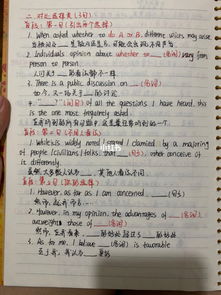 二. 对比选择类 (3句)
首段: 第一句 (引出两个选择)
1. When asked whether to do A or B, different voices may arise
2. Individuals' opinion about whether to ___ (名词) vary from
person to person.
人们对于___的看法都不一样
3. There is a public discussion on ___ (名词)
如今, 有一场关于___的讨论
4. "___" (问句) of all the questions I have heard, this
is the one most frequently asked.
首段: 第二句 (不同人看法)
1. While is widely noted and claimed by a majoring
of people (civilians/folks) that ___ (句), other conceive of
it differently.
虽然大多数人认为___, 其他人看法不同
1. However, as far as I am concerned ___ (句)
然而, 在我看来___
2. However, in my opinion, the advantages of ___ (名词)
outweight those of ___ (名词)
3. As to me, I believe ___ (名词) is favorable
至于我, 我认为___更好